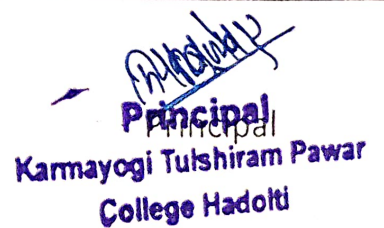 Principal
Principal
Karmayogi Tulshiram Pawar
College Hadolti